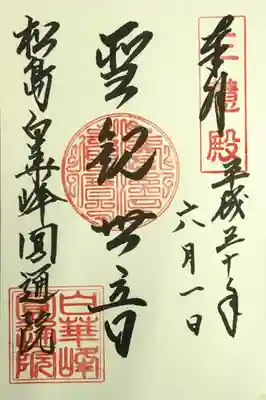 三慧殿
奉拝
平成三十年
六月一日
聖観世音
松島白華峰圓通院
白華峰
圓通院